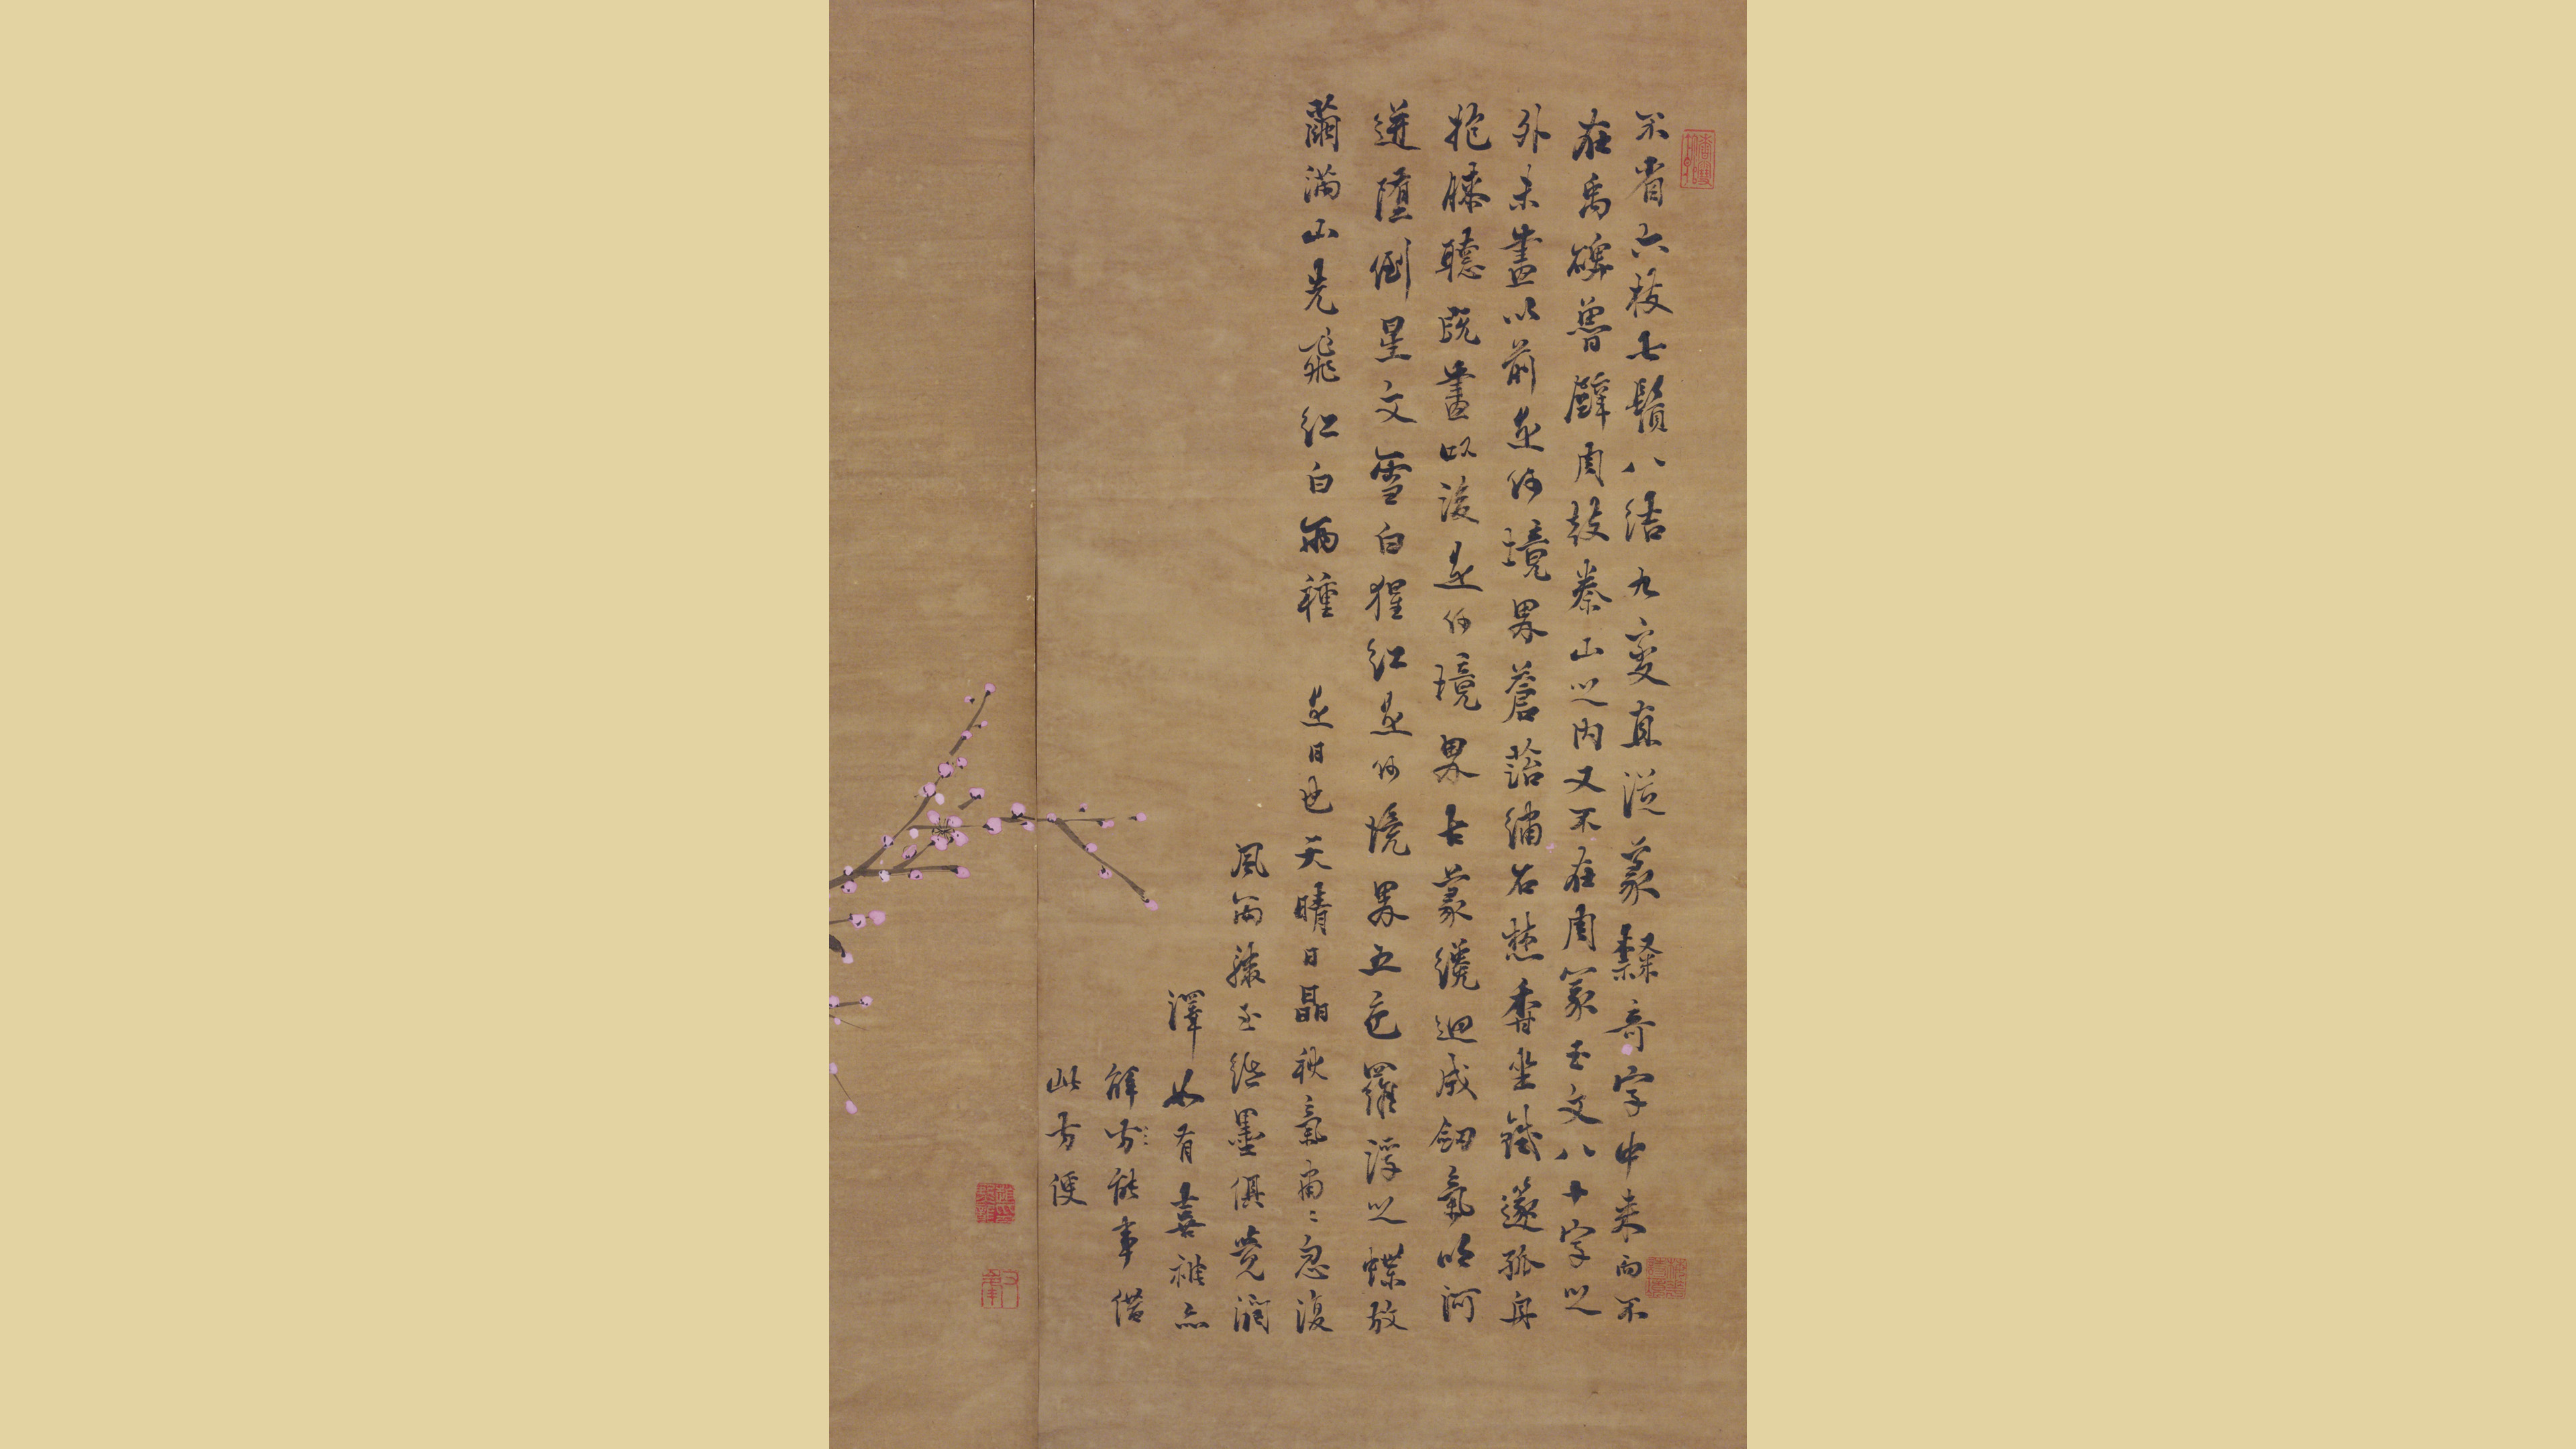 不省六枝七鬚八結九變直從篆隸奇字中來而不
在禹碑魯壁周鼓秦山之內又不在周篆玉文八十字之
外未畫以前是何境界蒼蔔繡石慈香坐鐵篴孤舟
抱膝聽既畫以後是何境界古篆繞迴成劍氣明河
迸墮倒星文雪白猩紅是何境界五色羅浮之蝶放
繭滿山先飛紅白兩種 是日也天晴日晶秋氣肅〻忽復
風雨驟至紙墨俱覺潤
澤如有喜神亦
解芳能事借
此方便